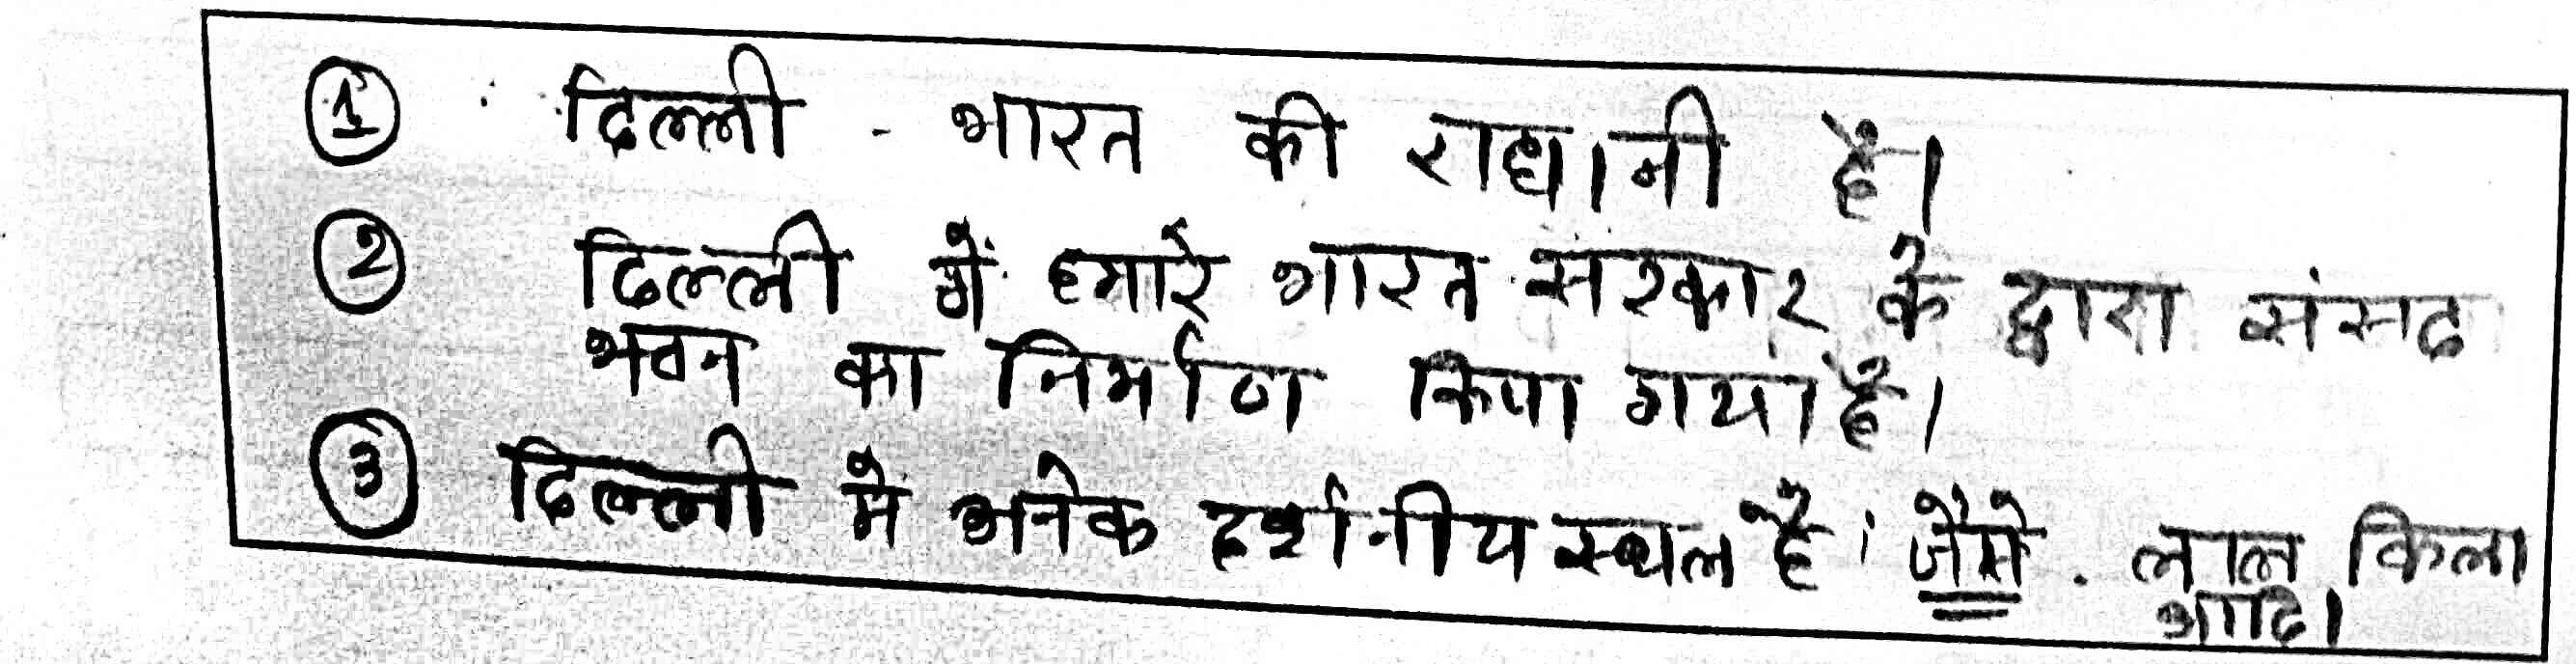 ① दिल्ली - भारत की राधानी है।
② दिल्ली में हमारे भारत सरकार के द्वारा संसद
भवन का निर्माण किया गया है।
③ दिल्ली में अनेक दर्शनीय स्थल है। जैसे. लाल किला
आदि।